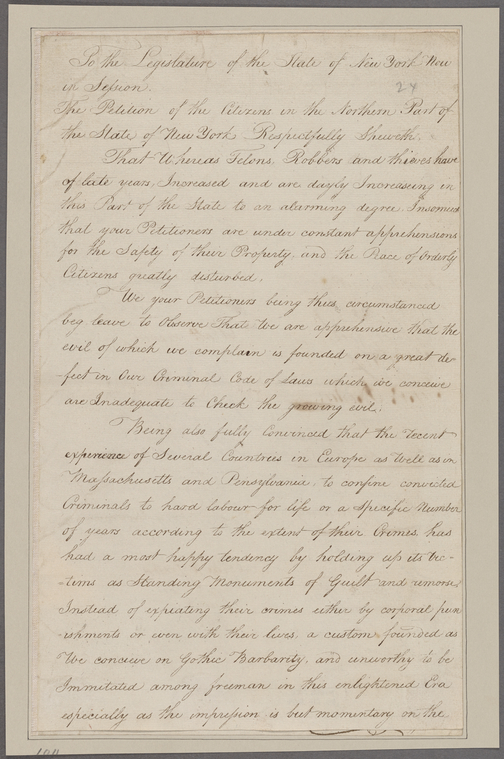 To the Legislature of the State of New York Now
in Session.
24
The Petition of the Citizens in the Northern Part of
the State of New York Respectfully Sheweth.
That Whereas Felons, Robbers and thieves have
of late years, Increased and are dayly Increasing in
this Part of the State to an alarming degree. Insomuch
that your Petitioners are under constant apprehensions
for the Safety of their Property, and the Peace of Orderly
Citizens greatly disturbed.
We your Petitioners being thus circumstanced
beg leave to Observe That We are apprehensive that the
evil of which we complain is founded on a great de-
-fect in Our Criminal Code of Laws which we conceive
are Inadequate to Check the growing evil.
Being also fully Convinced that the recent
experience of Several Countries in Europe as well as in
Massachusetts and Pensylvania, to confine convicted
Criminals to hard labour for life or a Specific Number
of years according to the extent of their Crimes, has
had a most happy tendency by holding up its vic-
-tims as Standing Monuments of Guilt and remorse
Instead of expiating their crimes either by corporal pun
-ishments or even with their lives, a custom founded as
We conceive on Gothic Barbarity, and unworthy to be
Immitated among freeman in this enlightened Era
especially as the impression is but momentary on the